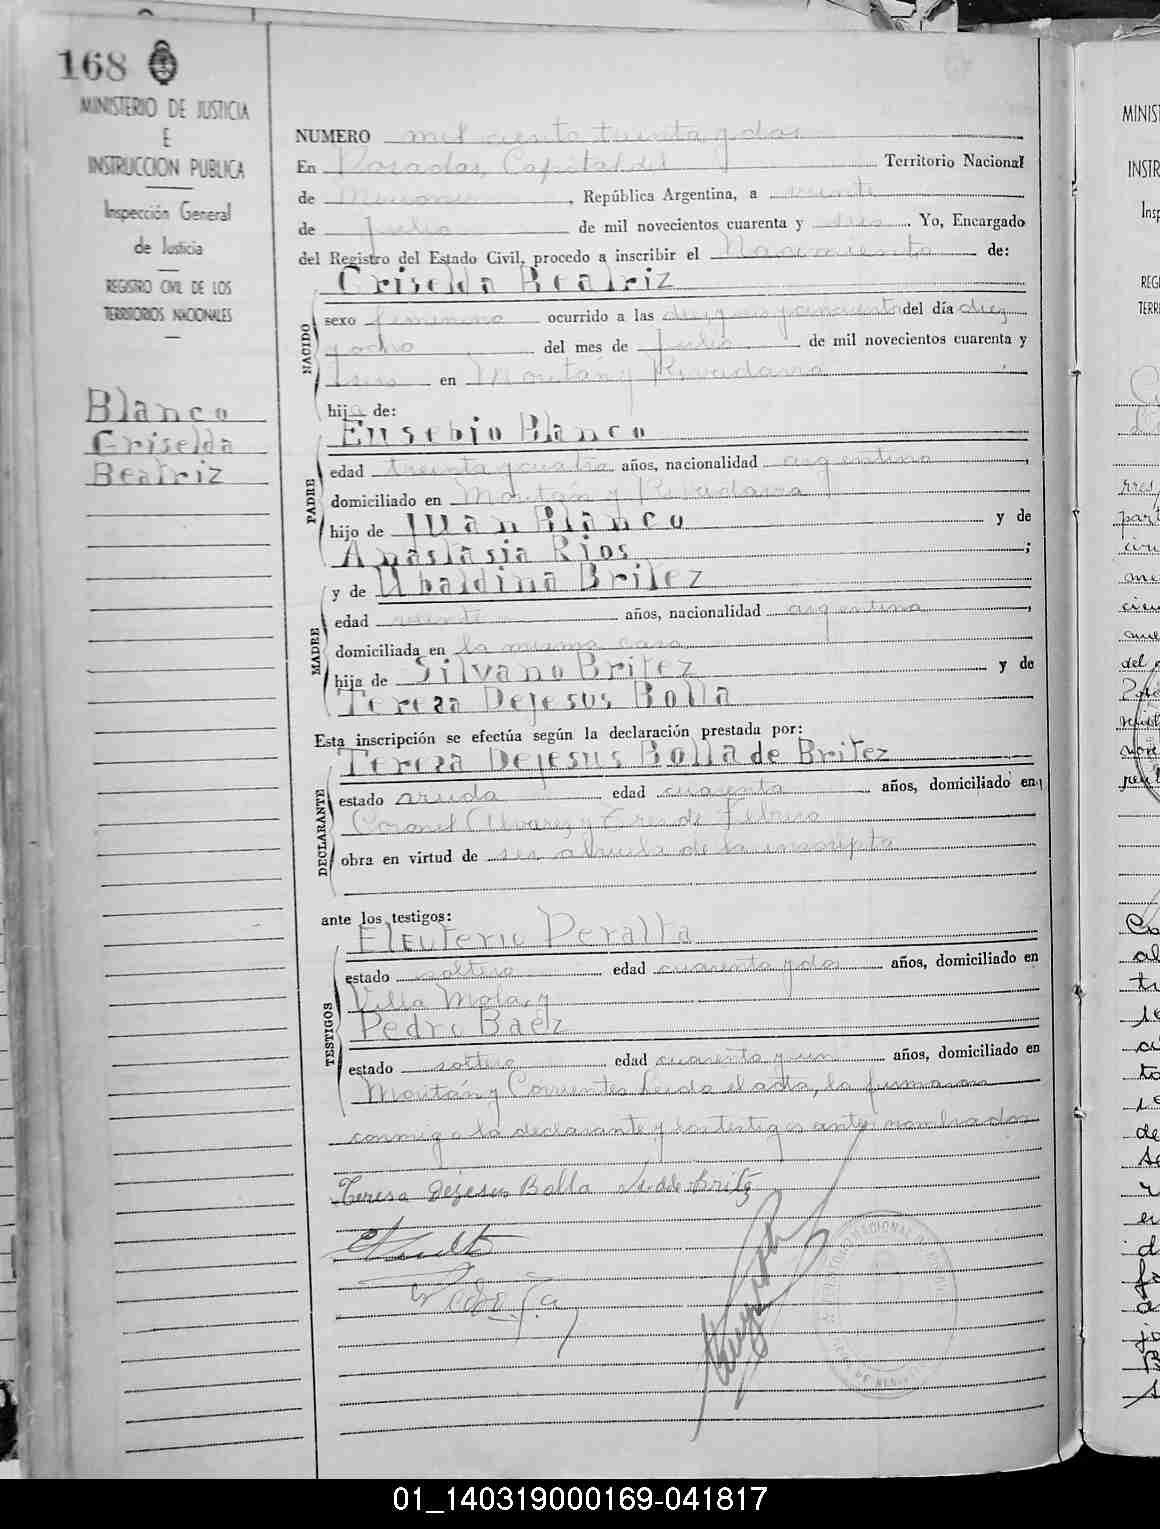 168
MINISTERIO DE JUSTICIA
E
INSTRUCCION PUBLICA
Inspección General
de Justicia
REGISTRO CIVIL DE LOS
TERRITORIOS NACIONALES
Blanco
Griselda
Beatriz
NUMERO mil ciento treinta y dos
En Posadas, Capital del Territorio Nacional
de Misiones, República Argentina, a veinte
de julio de mil novecientos cuarenta y seis. Yo, Encargado
del Registro del Estado Civil, procedo a inscribir el Nacimiento de:
Griselda Beatriz
NACIDO
sexo femenino ocurrido a las del día diez
y ocho del mes de julio de mil novecientos cuarenta y
seis en Moritán y Rivadavia
hija de:
Eusebio Blanco
PADRE
edad treinta y cuatro años, nacionalidad argentino,
domiciliado en Moritán y Rivadavia
hijo de Juan Blanco y de
Anastasia Rios;
y de Ubaldina Britez
MADRE
edad veinte años, nacionalidad argentina,
domiciliada en la misma casa
hija de Silvano Britez y de
Tereza Dejesus Bolla
Esta inscripción se efectúa según la declaración prestada por:
Tereza Dejesus Bolla de Britez
DECLARANTE
estado viuda edad cuarenta años, domiciliado en
Coronel Alvarez y Tres de Febrero
obra en virtud de ser abuela de la inscripta
ante los testigos:
Eleuterio Peralta
TESTIGOS
estado soltero edad cuarenta y dos años, domiciliado en
Villa Mola, y
Pedro Baez
estado soltero edad cuarenta y un años, domiciliado en
Moritán y Corrientes. Leida el acta, la firmaron
conmigo la declarante y los testigos antes nombrados
Teresa Dejesus Bolla Britez
01_140319000169-041817